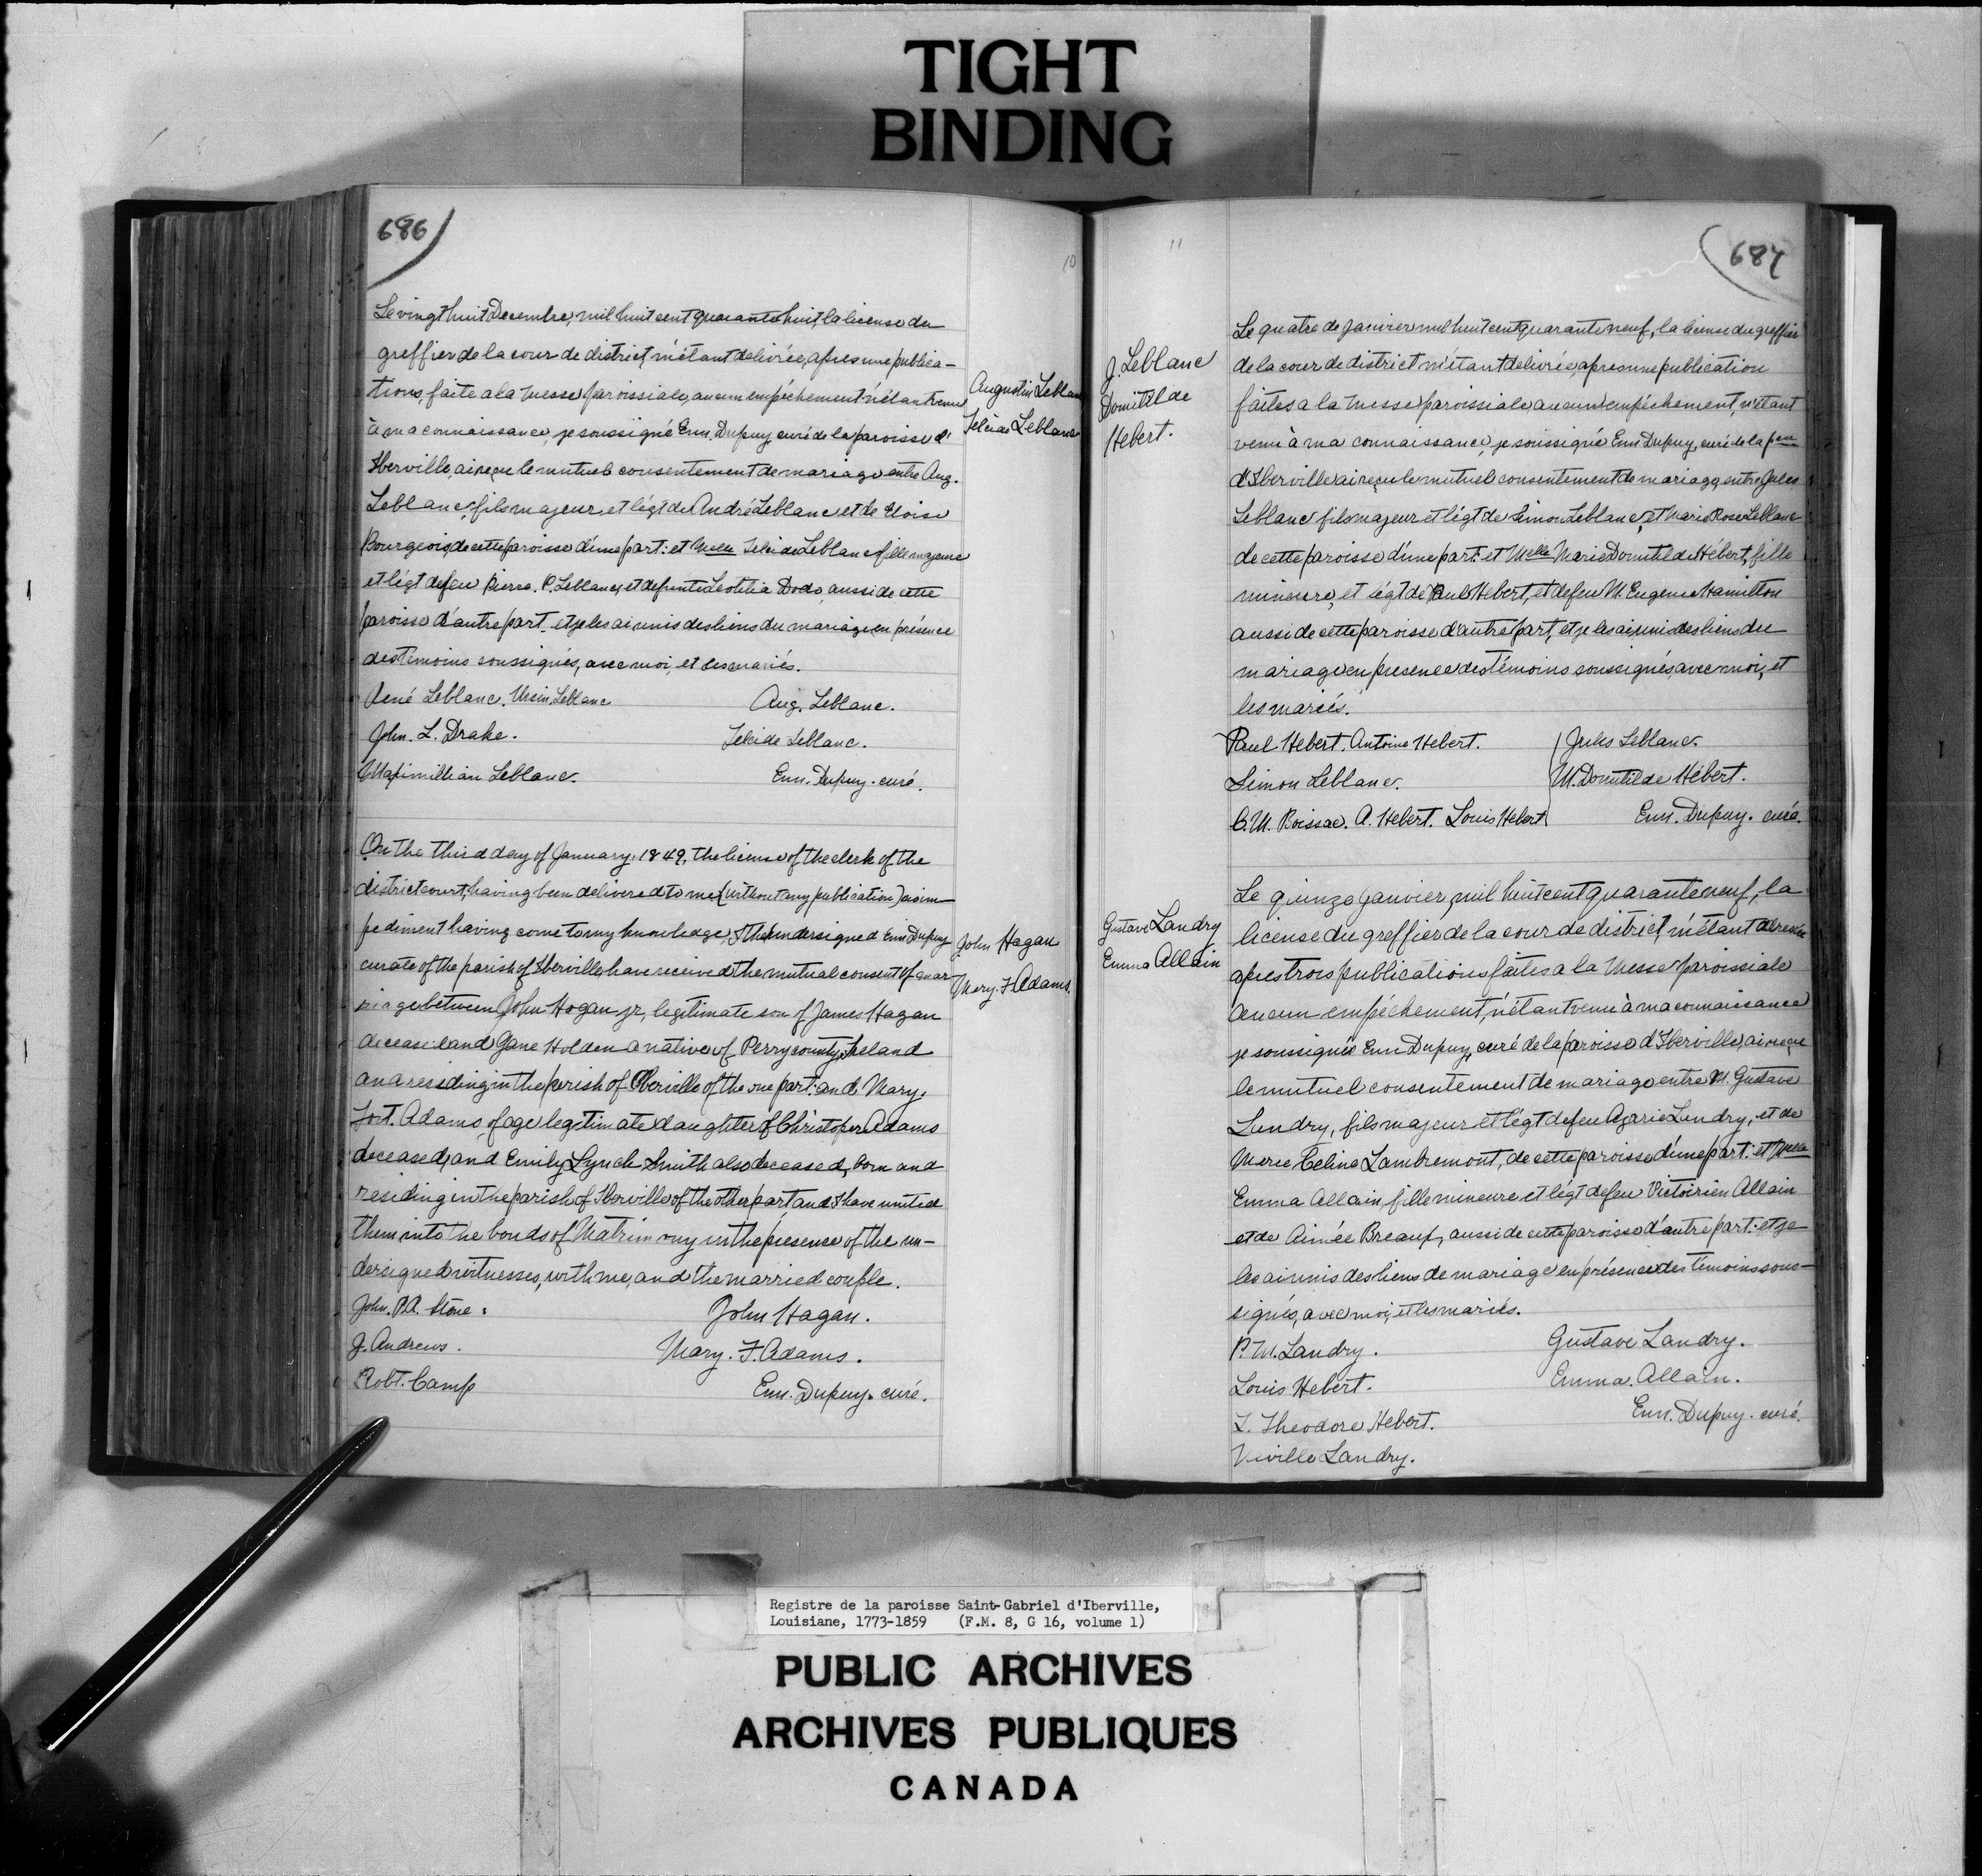 TIGHT
BINDING
686
10
Le vingt huit Decembre, mil huit cent quarante huit, la license du
greffier de la cour de district, m'étant délivrée, apres une publica-
tions, faite a la Messe paroissiale, aucun empéchement n'étant venu
à ma connaissance, je soussigné Enn. Dupuy, curé de la paroisse d'
Iberville, ai reçu le mutuel consentement de mariage entre Aug.
Leblanc, fils majeur, et légt de André Leblanc et de Eloise
Bourgeois, de cette paroisse d'une part: et Melle Leblanc fille majeure
et légt de feu Pierre. P. Leblanc, et defunte Dodo, aussi de cette
paroisse d'autre part. et je les ai unis des liens du mariage en présence
des témoins soussignés, avec moi, et les mariés.
Augustin Leblanc
Leblanc
René Leblanc. Ursin Leblanc Aug. Leblanc.
John. L. Drake. Leblanc.
Maximillian Leblanc. Enn. Dupuy. curé.
On the third day of January, 1849, the license of the clerk of the
district court, having been delivered to me (without any publication) no im-
pediment having come to my knowledge, I the undersigned Enn Dupuy
curate of the parish of Iberville, have received the mutual consent of mar-
riage between John Hogan jr, legitimate son of James Hagan
deceased and Jane Holden a native of Perry county, Ireland
and residing in the parish of Iberville of the one part: and Mary.
Fort. Adams, of age legitimate daughter of Christoper Adams
deceased, and Emily Lynch Smith also deceased, born and
residing in the parish of Iberville of the other part, and I have united
them into the bonds of Matrimony in the presence of the un-
dersigned witnesses, with me, and the married couple.
John Hagan
Mary. F. Adams.
John. P.A. Stone. John Hagan.
J. Andrews. Mary. F. Adams.
Robt. Camp Enn. Dupuy. curé.
11
687
J. Leblanc
Domitilde
Hebert.
Le quatre de Janvier mil huit cent quarante neuf, la license du greffier
de la cour de district m'étant délivrée, apres une publication
faites a la Messe paroissiale aucun empéchement, n'étant
venu à ma connaissance, je soussigné Enn Dupuy, curé de la psse
d'Iberville ai reçu le mutuel consentement de mariage, entre Jules
Leblanc fils majeur et légt de Simon Leblanc, et Marie Rose Leblanc
de cette paroisse d'une part: et Melle Marie Domitilde Hébert, fille
mineure, et légt de Paul Hebert, et de feu M. Eugenie Hamilton
aussi de cette paroisse d'autre part, et je les ai unis des liens du
mariage en presence des témoins soussignés, avec moi, et
les mariés.
Paul Hebert. Antoine Hebert. Jules Leblanc.
Simon Leblanc. M. Domitilde Hébert.
C.M. Boissac. A. Hebert. Louis Hebert Enn. Dupuy. curé.
Gustave Landry
Emma Allain
Le quinze Janvier, mil huit cent quarante neuf, la
license du greffier de la cour de district, m'étant
apres trois publications faites a la Messe paroissiale
aucun empéchement, n'étant venu à ma connaissance
je soussigné Enn Dupuy, curé de la paroisse d'Iberville, ai reçu
le mutuel consentement de mariage entre M. Gustave
Landry, fils majeur et légt de feu Azarie Landry, et de
Marie Celine Lambremont, de cette paroisse d'une part: et Melle
Emma Allain, fille mineure et légt de feu Victoirien Allain
et de Aimée Breaux, aussi de cette paroisse d'autre part: et je
les ai unis des liens de mariage en présence des témoins sous-
signés, avec moi, et les mariés.
P. M. Landry. Gustave Landry.
Louis Hebert. Emma. Allain.
T. Theodore Hebert. Enn. Dupuy. curé.
Landry.
Registre de la paroisse Saint-Gabriel d'Iberville,
Louisiane, 1773-1859 (F.M. 8, G 16, volume 1)
PUBLIC ARCHIVES
ARCHIVES PUBLIQUES
CANADA